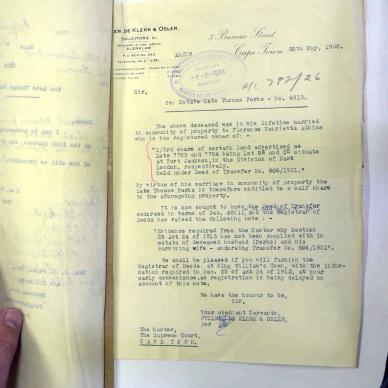 ER, DE KLERK & OSLER.
SOLICITORS, &c.
3 Bureau Street
Cape Town 30th May, 1938.
a/c 782/26
Sir,
re: Estate late Thomas Perks - No. 6813.
The above deceased was in his lifetime married
in community of property to Florence Henrietta Adkins
who is the registered owner of: -
"1/3rd share of certain land advertised as
Lots 7753 and 7754 being Lot and situate
at Fort Jackson, in the Division of East
London, respectively.
Held under Deed of Transfer No. 806/1921."
By virtue of his marriage in community of property the
late Thomas Perks is therefore entitled to a half share in
the aforegoing property.
It is now sought to have the Deed of Transfer
endorsed in terms of Sec. 45(1), and the Registrar of
Deeds has raised the following note : -
"Evidence required from the Master why Section
25 Act 24 of 1913 has not been complied with in
estate of deceased husband (Perks) and his
surviving wife - endorsing Transfer No. 806/1921".
We shall be pleased if you will furnish the
Registrar of Deeds, at King William's Town, with the infor-
mation required in Sec. 25 of Act 24 of 1913, at your
early convenience, as registration is being delayed on
account of this note.
We have the honour to be,
Sir,
Your obedient Servants,
DE KLERK & OSLER,
per
The Master,
The Supreme Court,
CAPE TOWN.